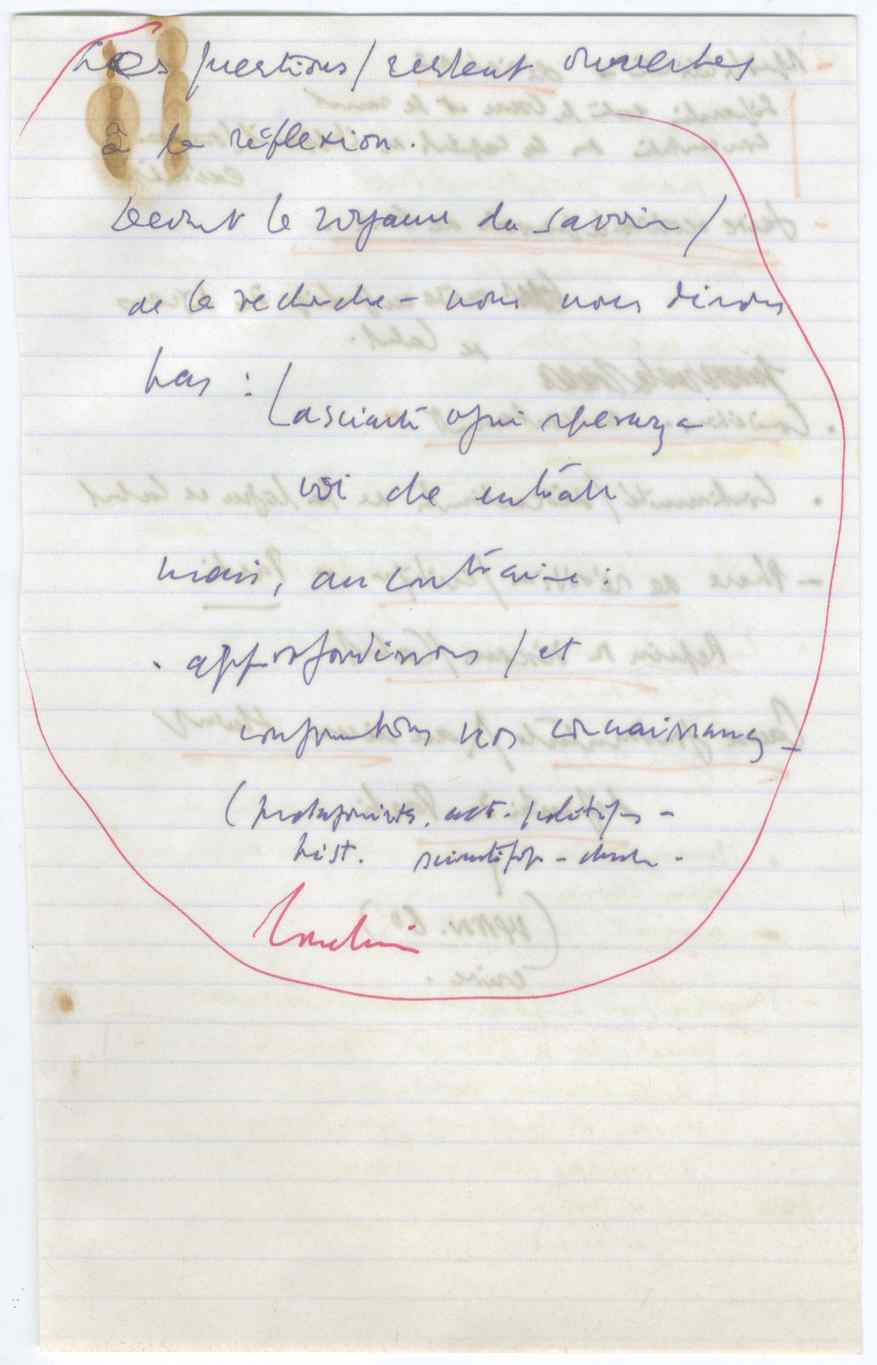 Les questions / restent ouvertes
à la réflexion.
Devant le royaume du savoir /
de la recherche – nous nous disons
pas :
Lasciate ogni speranza
voi che entrate
mais, au contraire :
. approfondissons / et
confrontons nos connaissances –
(protagonistes, act. politiques –
hist. scientifiq –